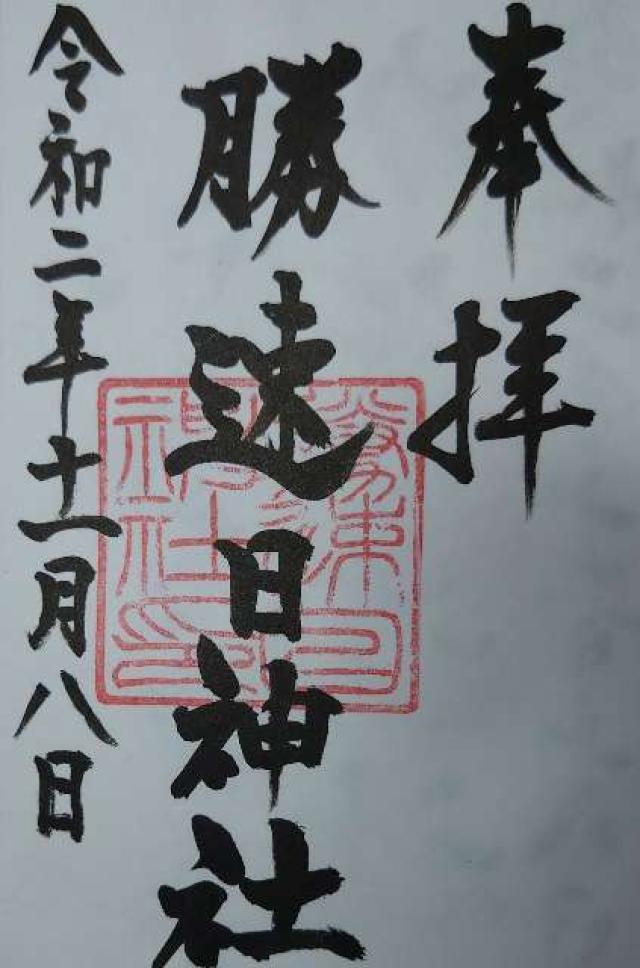 奉拝
勝速日神社
令和二年十一月八日